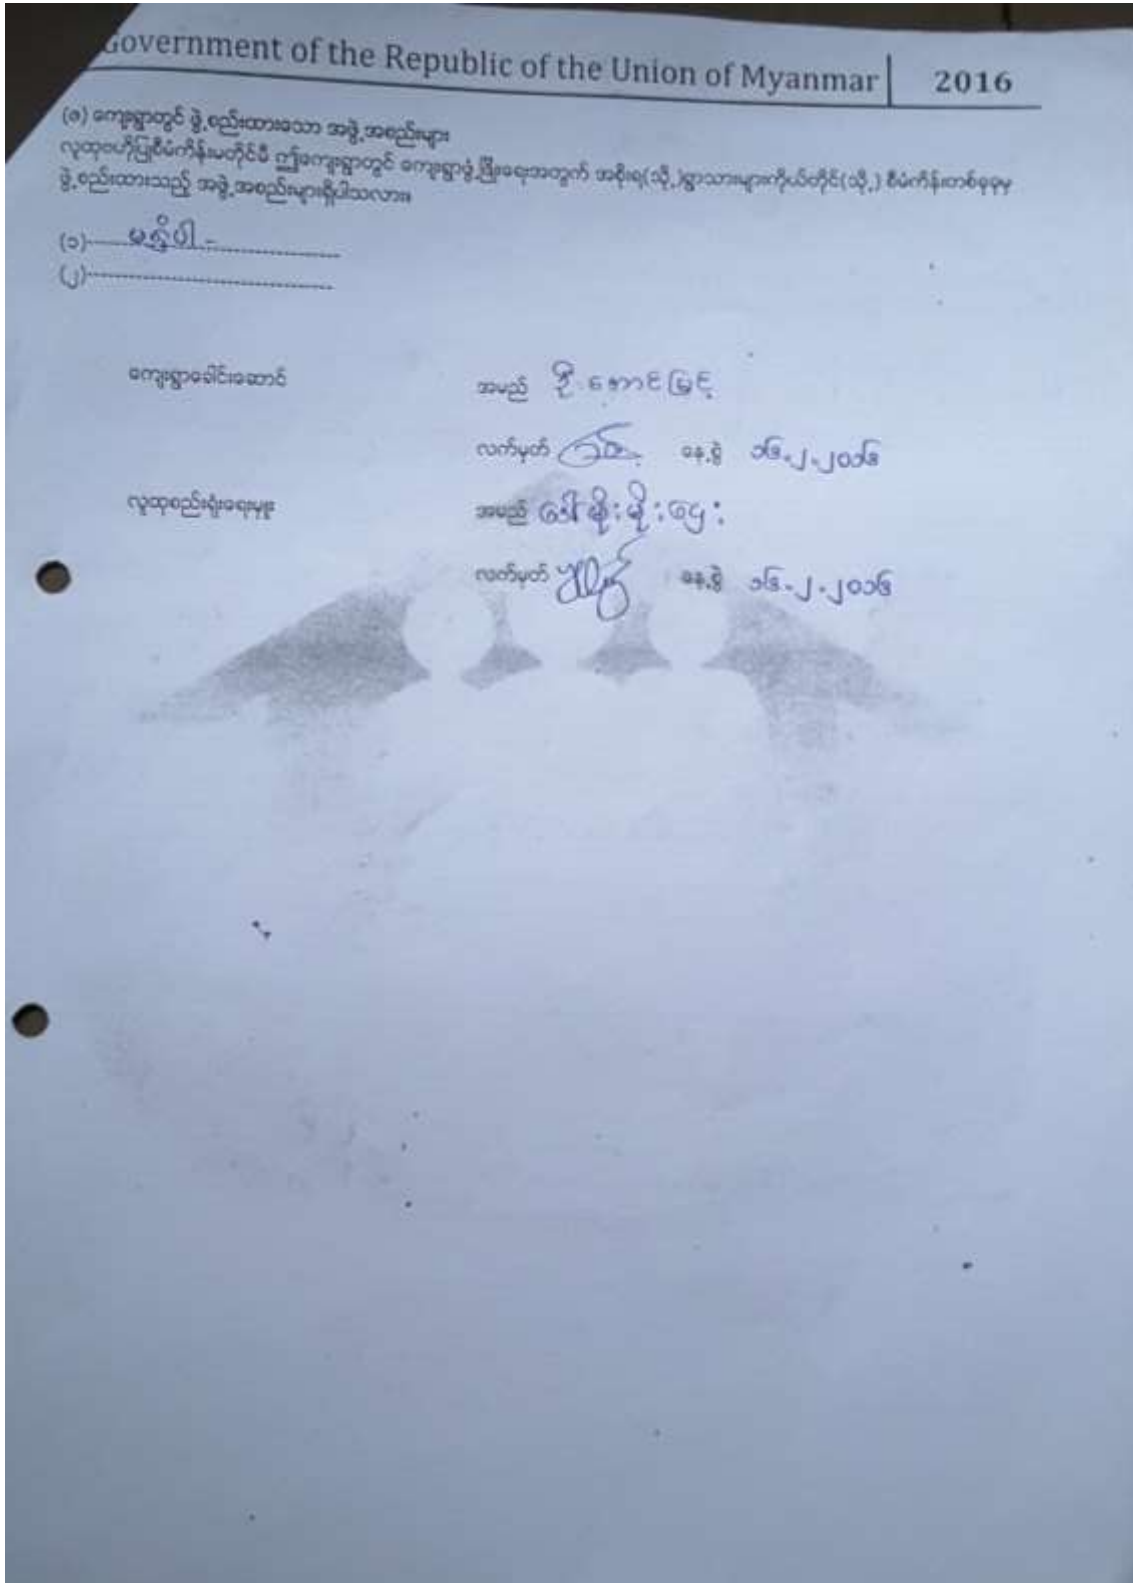 Government of the Republic of the Union of Myanmar 2016
(ဇ) ကျေးရွာတွင် ဖွဲ့စည်းထားသော အဖွဲ့အစည်းများ
လူထုဗဟိုပြုစီမံကိန်းမတိုင်မီ ဤကျေးရွာတွင် ကျေးရွာဖွံ့ဖြိုးရေးအတွက် အစိုးရ(သို့)ရွာသားများကိုယ်တိုင်(သို့) စီမံကိန်းတစ်ခုခုမှ
ဖွဲ့စည်းထားသည့် အဖွဲ့အစည်းများရှိပါသလား။
(၁) မရှိပါ -
(၂)
ကျေးရွာခေါင်းဆောင် အမည် ဦးအောင်မြင့်
လက်မှတ် နေ့စွဲ ၁၆.၂.၂၀၁၆
လူထုစည်းရုံးရေးမှူး အမည် ဒေါ်မိုးမိုးဌေး
လက်မှတ် နေ့စွဲ ၁၆.၂.၂၀၁၆